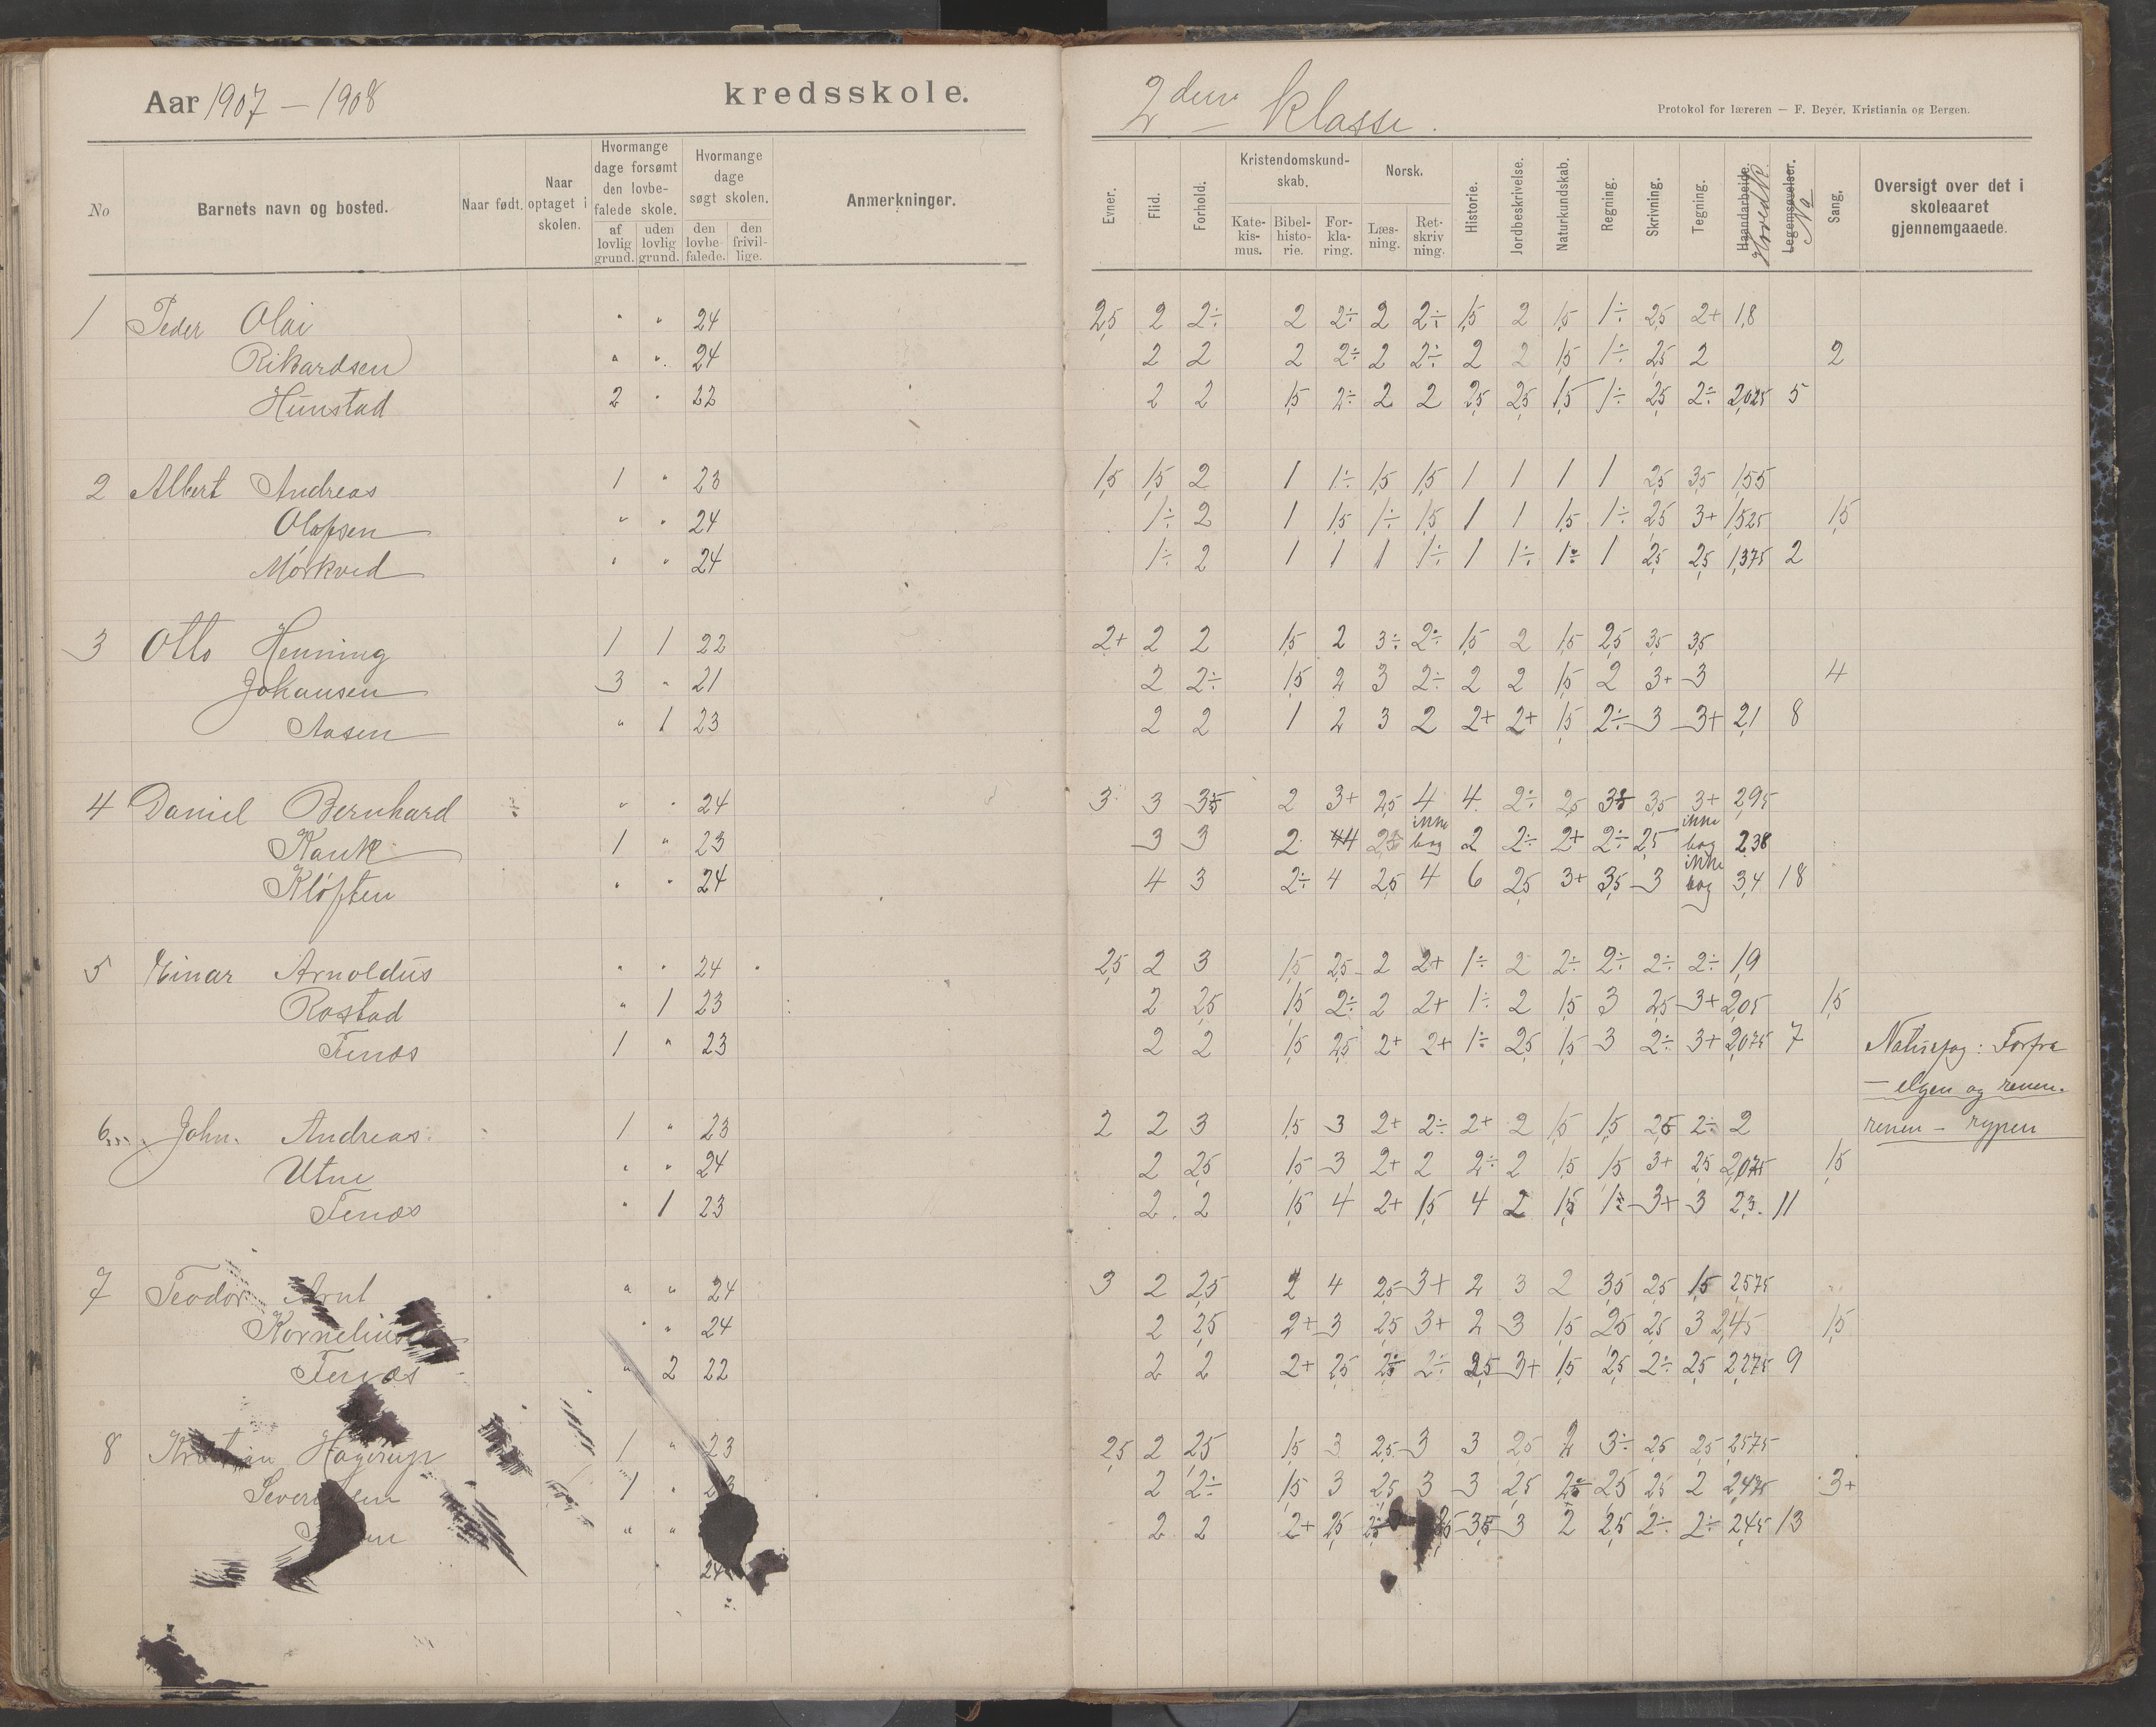 Aar 1907 – 1908 kredsskole.
2den Klasse.
Protokol for læreren — F. Beyer, Kristiania og Bergen.
No
Barnets navn og bosted.
Naar født.
Naar optaget i skolen.
Hvormange dage forsømt den lovbefalede skole.
af lovlig grund.
uden lovlig grund.
Hvormange dage søgt skolen.
den lovbefalede.
den frivillige.
Anmerkninger.
Evner.
Flid.
Forhold.
Kristendomskundskab.
Katekismus.
Bibelhistorie.
Forklaring.
Norsk.
Læsning.
Retskrivning.
Historie.
Jordbeskrivelse.
Naturkundskab.
Regning.
Skrivning.
Tegning.
Haandarbeide. Hovedk.
Legemsøvelser. No
Sang.
Oversigt over det i skoleaaret gjennemgaaede.
1 Peder Olai " " 24 2,5 2 2÷ 2 2÷ 2 2÷ 1,5 2 1,5 1÷ 2,5 2+ 1,8
Rikardsen " " 24 2 2 2 2÷ 2 2÷ 2 2 1,5 1÷ 2,5 2 2
Hunstad 2 " 22 2 2 1,5 2÷ 2 2 2,5 2,5 1,5 1÷ 2,5 2÷ 2,025 5
2 Albert Andreas 1 " 23 1,5 1,5 2 1 1÷ 1,5 1,5 1 1 1 1 2,5 3,5 1,55
Olafsen " " 24 1÷ 2 1 1,5 1÷ 1,5 1 1 1,5 1÷ 2,5 3+ 1,525 1,5
Mørkved " " 24 1÷ 2 1 1 1 1÷ 1 1÷ 1÷ 1 2,5 2,5 1,375 2
3 Otto Henning 1 1 22 2+ 2 2 1,5 2 3÷ 2÷ 1,5 2 1,5 2,5 3,5 3,5
Johansen 3 " 21 2 2÷ 1,5 2 3 2÷ 2 2 1,5 2 3+ 3 4
Aasen " 1 23 2 2 1 2 3 2 2+ 2+ 1,5 2÷ 3 3+ 2,1 8
4 Daniel Bernhard " " 24 3 3 2 3+ 2,5 4 4 2÷ 2,5 3,5 3+ 2,95
Kank 1 " 23 3 3 2 ikke bog 2 2÷ 2+ 2÷ 2,5 ikke bog 2,38
Kløften " " 24 4 3 2÷ 4 2,5 4 6 2,5 3+ 3,5 3 ikke bog 3,4 18
5 Einar Arnoldus " " 24 2,5 2 3 1,5 2,5 2 2+ 1÷ 2 2÷ 2÷ 2÷ 2÷ 1,9
Rostad " 1 23 2 2,5 1,5 2÷ 2 2+ 1÷ 2 1,5 3 2,5 3+ 2,05 1,5
Tenæs 1 " 23 2 2 1,5 2,5 2+ 2+ 1÷ 2,5 1,5 3 2÷ 3+ 2,075 7 Naturfag: Forfra
— elgen og renen.
6 John. Andreas 1 " 23 2 2 3 1,5 3 2+ 2÷ 2+ 2 1,5 1,5 2,5 2÷ 2 renen – rypen
Utne " " 24 2 2,5 1,5 3 2+ 2 2÷ 2 1,5 1,5 3+ 2,5 2,075 1,5
Tenæs " 1 23 2 2 1,5 4 2+ 1,5 4 2 1,5 1÷ 3+ 3 2,3 11
7 Teodor Arnt " " 24 3 2 2,5 2 4 2,5 3+ 2 3 2 3,5 2,5 1,5 2,575
" " 24 2 2,5 2+ 3 2,5 3+ 2 3 1,5 2,5 2,5 3 2,45 1,5
Tenæs " 2 22 2 2 2+ 2,5 2÷ 2,5 3+ 1,5 2,5 2÷ 2,5 2,275 9
8 Hagerup 1 " 23 2,5 2 2,5 1,5 3 2,5 3 3 2,5 2 3÷ 2,5 2,5 2,575
1 " 23 2 2÷ 1,5 3 2,5 3 3 2,5 2,5 2,5 2 2,475 3+
" " 2 2 2+ 2,5 3 2 2,5 2÷ 2÷ 2,45 13
24